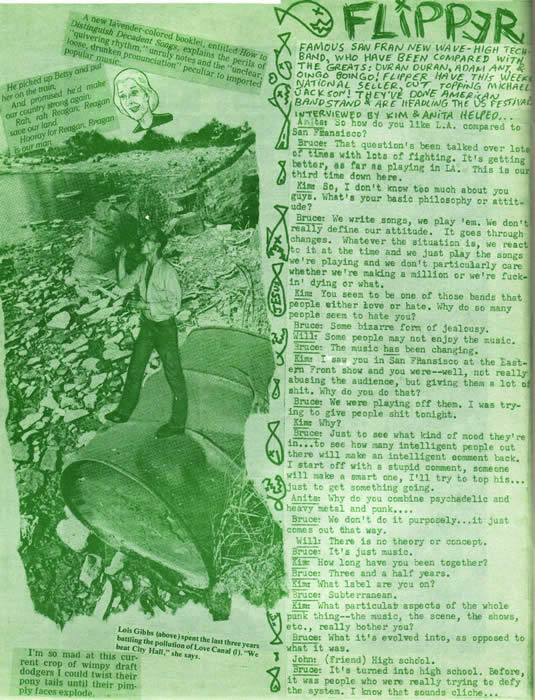 A new lavender-colored booklet, entitled How to
Distinguish Decadent Songs, explains the perils of
"quivering rhythm," unruly notes and the "unclear,
loose, drunken pronunciation" peculiar to imported
popular music.
He picked up Betsy and put
her on the train,
And promised he'd make
our country strong again.
Rah, rah Reagan, Reagan
save our land
Hooray for Reagan, Reagan
is our man.
Lois Gibbs (above) spent the last three years
battling the pollution of Love Canal (l). "We
beat City Hall," she says.
I'm so mad at this cur-
rent crop of wimpy draft
dodgers I could twist their
pony tails until their pim-
ply faces explode.
FLIPPER
FAMOUS SAN FRAN NEW WAVE-HIGH TECH-
BAND, WHO HAVE BEEN COMPARED WITH
THE GREATS: DURAN DURAN, ADAM ANT &
OINGO BOINGO! FLIPPER HAVE THIS WEEKS
NATIONAL SELLER, OUT TOPPING MICHAEL
JACKSON! THEY'VE DONE AMERICAN
BANDSTAND & ARE HEADLING THE US FESTIVAL
INTERVIEWED BY KIM & ANITA HELPED...
Anita: So how do you like L.A. compared to
San FRansisco?
Bruce: That question's been talked over lots
of times with lots of fighting. It's getting
better, as far as playing in LA. This is our
third time down here.
Kim: So, I don't know too much about you
guys. What's your basic philosophy or attit-
ude?
Bruce: We write songs, we play 'em. We don't
really define our attitude. It goes through
changes. Whatever the situation is, we react
to it at the time and we just play the songs
we're playing and we don't particularly care
whether we're making a million or we're fuck-
in' dying or what.
Kim: You seem to be one of those bands that
people either love or hate. Why do so many
people seem to hate you?
Bruce: Some bizarre form of jealousy.
Will: Some people may not enjoy the music.
Bruce: The music has been changing.
Kim: I saw you in San FRansisco at the East-
ern Front show and you were--well, not really
abusing the audience, but giving them a lot of
shit. Why do you do that?
Bruce: We were playing off them. I was try-
ing to give people shit tonight.
Kim: Why?
Bruce: Just to see what kind of mood they're
in...to see how many intelligent people out
there will make an intelligent comment back.
I start off with a stupid comment, someone
will make a smart one, I'll try to top his...
just to get something going.
Anita: Why do you combine psychadelic and
heavy metal and punk....
Bruce: We don't do it purposely...it just
comes out that way.
Will: There is no theory or concept.
Bruce: It's just music.
Kim: How long have you been together?
Bruce: Three and a half years.
Kim: What label are you on?
Bruce: Subterranean.
Kim: What particular aspects of the whole
punk thing--the music, the scene, the shows,
etc., really bothe you?
Bruce: What it's evolved into, as opposed to
what it was.
John: (friend) High school.
Bruce: It's turned into high school. Before,
it was people who were really trying to defy
the system. I know tht sounds cliche...
JESUS